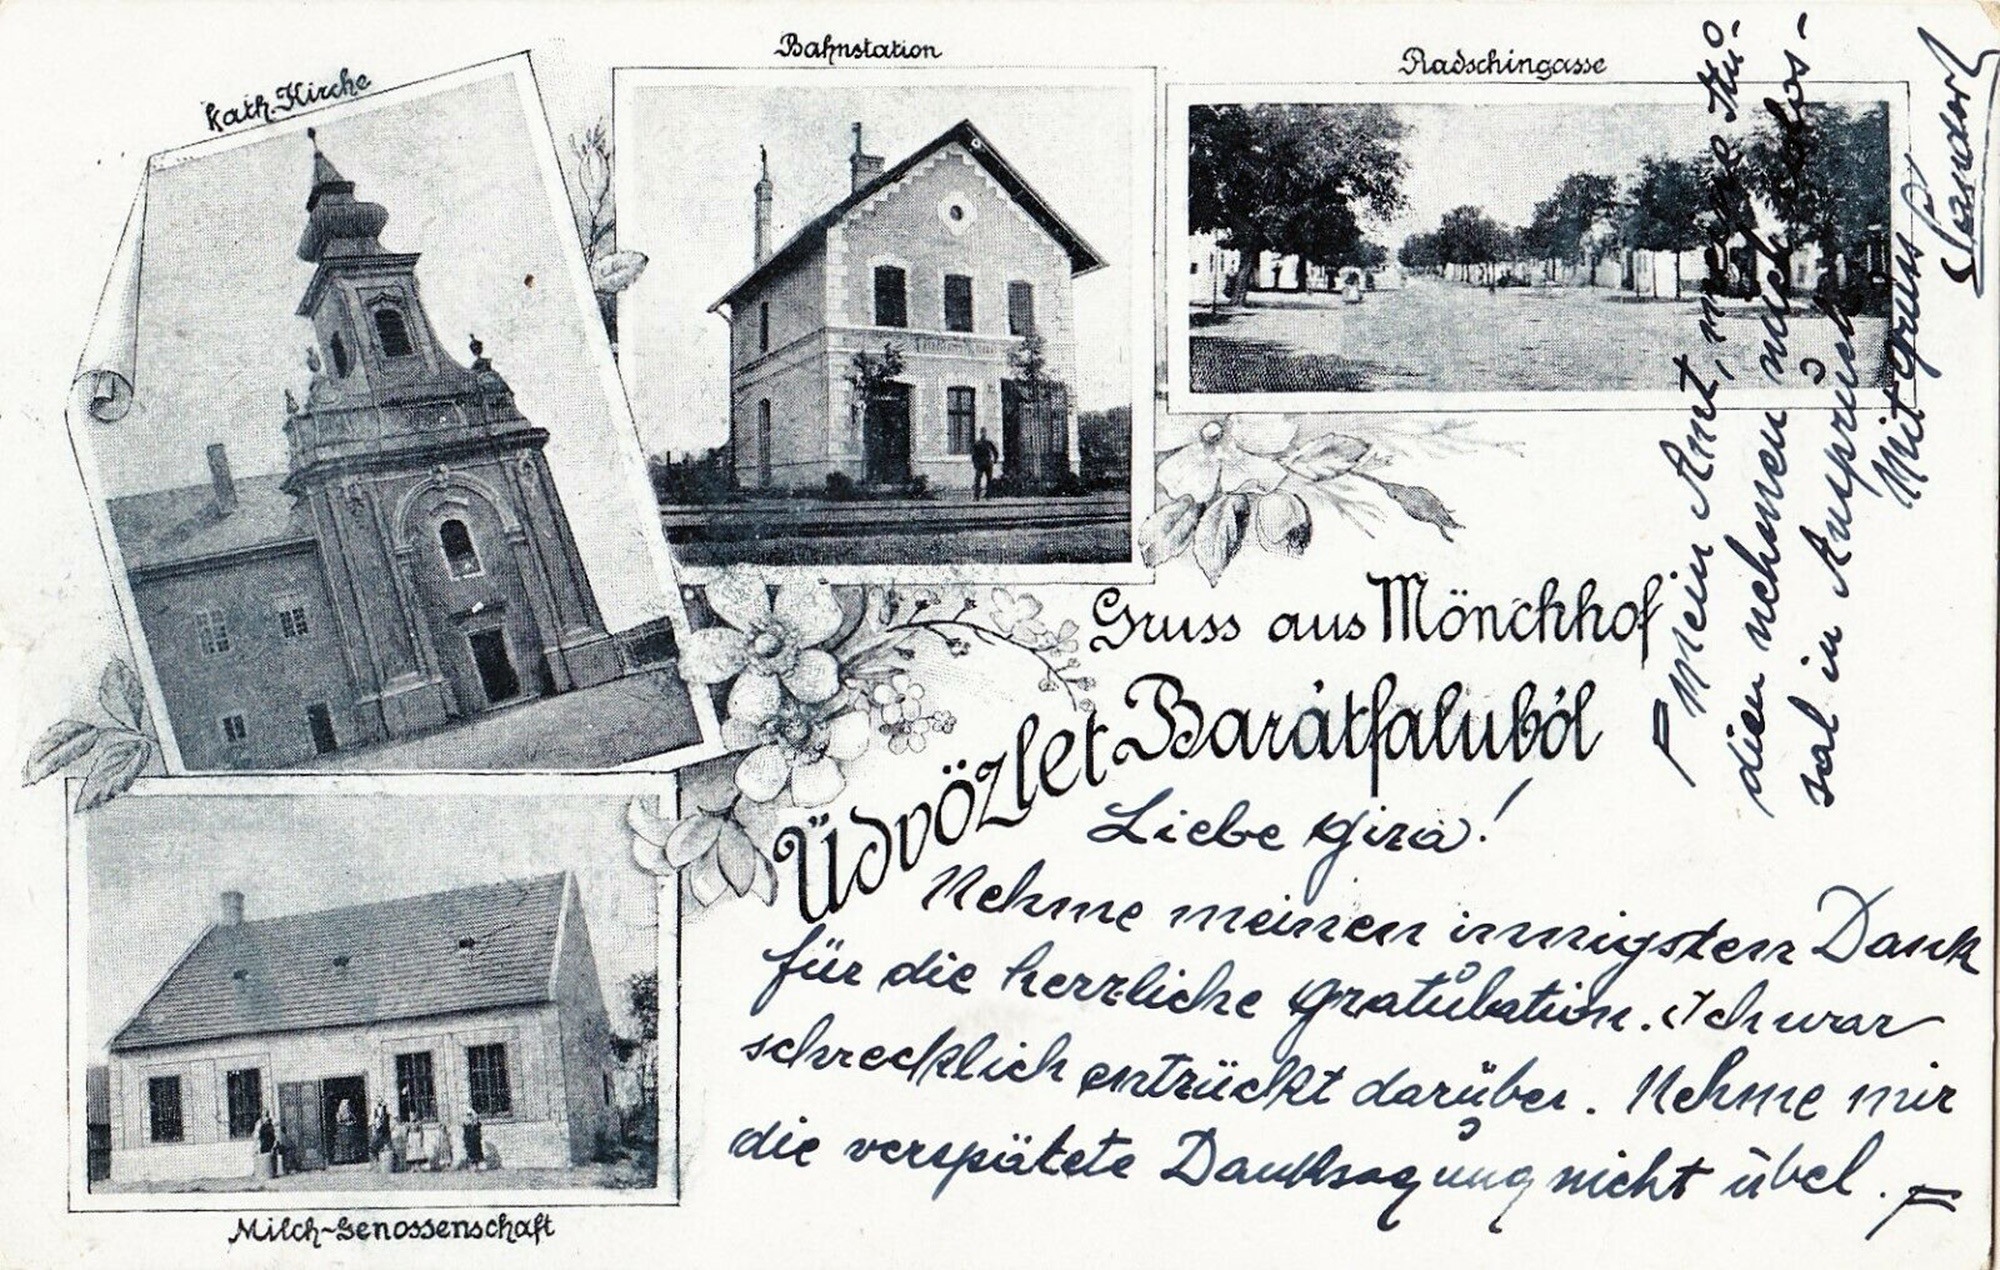 kath. Kirche
Bahnstation
Radschingasse
Gruss aus Mönchhof
Üdvözlet Barátfaluból
Milch-Genossenschaft
Liebe Gira!
Nehme meinen innigsten Dank
für die herrliche Gratulation. Ich war
schrecklich entzückt darüber. Nehme mir
die verspätete Danksagung nicht übel.
Mein Amt, meine Stu-
dien nehmen mich kolos-
sal in Anspruch
Mit Gruss
Sandor